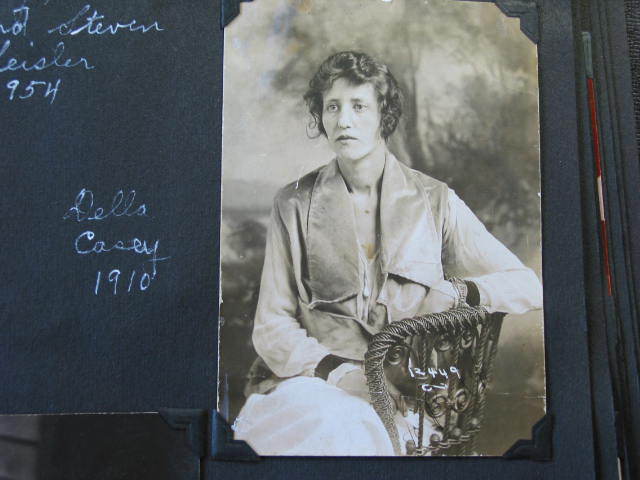 and Steven
Leisler
1954
Della
Casey
1910
13449